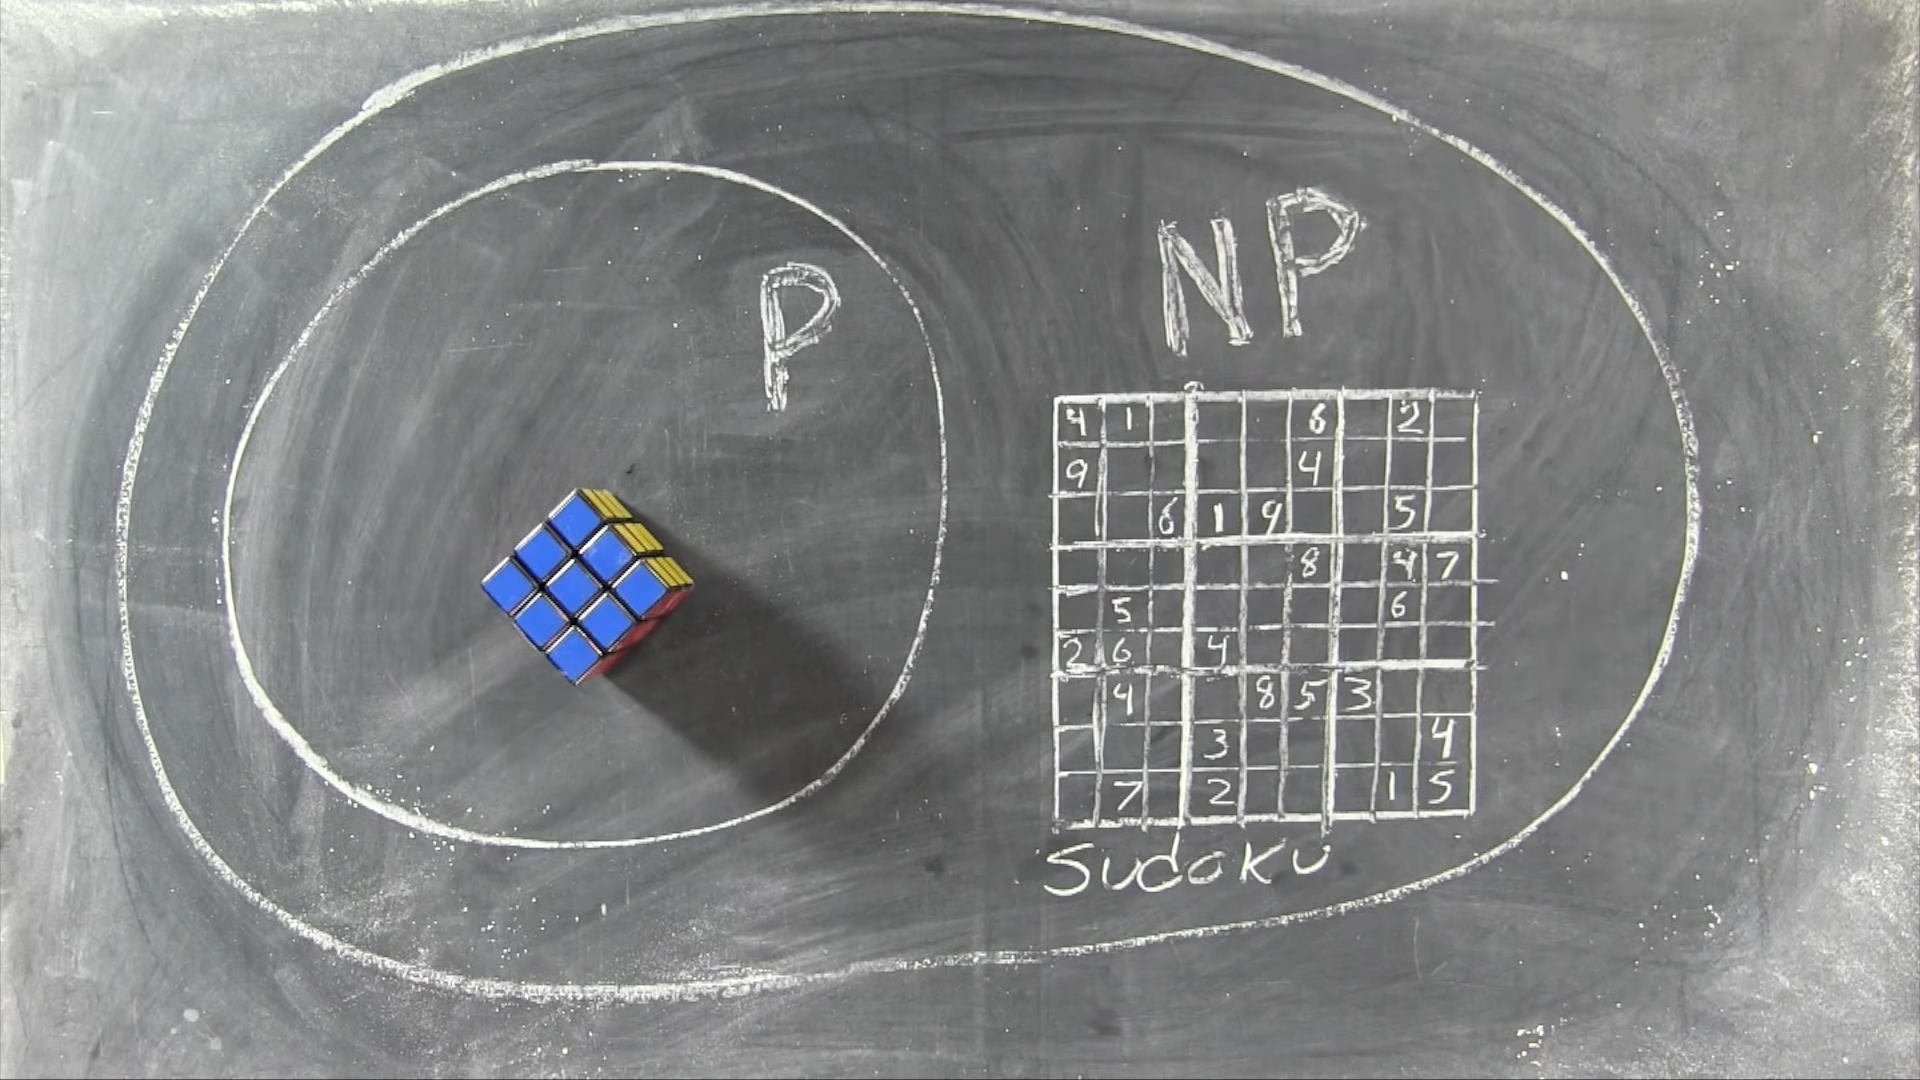 NP
P
4 1 6 2
9 4
6 1 9 5
8 4 7
5 6
2 6 4
4 8 5 3
3 4
7 2 1 5
Sudoku